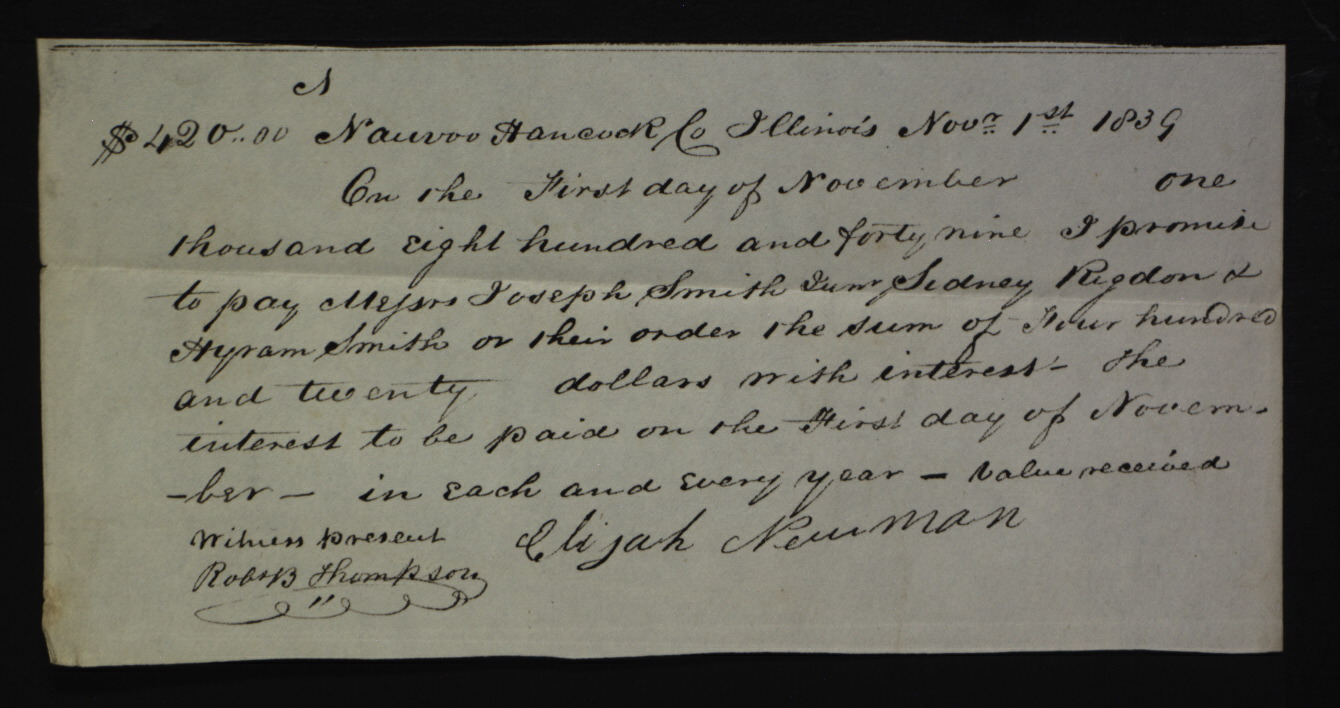 N
$420..00 Nauvoo Hancock Co Illinois Novr 1st 1839
On the First day of November one
thousand eight hundred and forty nine I promise
to pay Messrs Joseph Smith Junr, Sidney Rigdon &
Hyram Smith or their order the sum of Four hundred
and twenty dollars with interest - the
interest to be paid on the First day of Novem-
-ber - in each and every year - value received
Witness present Elijah Newman
Robt B Thompson